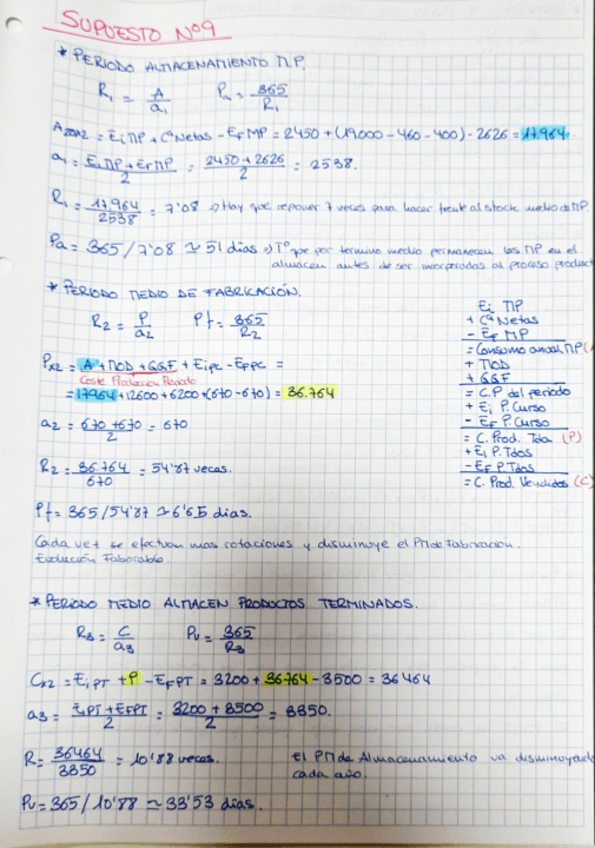 SUPUESTO Nº9
* PERIODO ALMACENAMIENTO M.P.
R₁ = A / a₁    Pa = 365 / R₁
A20X2 = Ei MP + Cª Netas - EF MP = 2450 + (19.000 - 460 - 400) - 2626 = 17.964.
a₁ = Ei MP + EF MP / 2 = 2450 + 2626 / 2 = 2538.
R₁ = 17.964 / 2538 = 7'08 ⇒ Hay que reponer 7 veces para hacer frente al stock medio de MP
Pa = 365 / 7'08 ≃ 51 dias ⇒ Tº que por termino medio permanecen las MP en el
almacen antes de ser incorporadas al proceso product
* PERIODO MEDIO DE FABRICACIÓN.
R₂ = P / a₂    Pf = 365 / R₂
Px2 = A + MOD + GGF + Ei PC - EF PC =
Coste Produccion Periodo
= 17964 + 12600 + 6200 + (670 - 670) = 36.764
a₂ = 670 + 670 / 2 = 670
R₂ = 36.764 / 670 = 54'87 veces.
Pf = 365 / 54'87 ≃ 6'65 dias.
Cada vez se efectuan mas rotaciones y disminuye el PM de Fabricación.
Evolución Faborable.
Ei MP
+ Cª Netas
- EF MP
= Consumo anual MP (
+ MOD
+ GGF
= C.P del periodo
+ Ei P. Curso
- EF P. Curso
= C. Prod. Tda (P)
+ Ei P. Tdos
- EF P. Tdos
= C. Prod. Vendidos (C)
* PERIODO MEDIO ALMACEN PRODUCTOS TERMINADOS.
R₃ = C / a₃    Pv = 365 / R₃
Cx2 = Ei PT + P - EF PT = 3200 + 36764 - 3500 = 36464
a₃ = Ei PT + EF PT / 2 = 3200 + 3500 / 2 = 3350.
R = 36464 / 3350 = 10'88 veces.
El PM de Almacenamiento va disminuyendo
cada año.
Pv = 365 / 10'88 ≃ 33'53 dias.